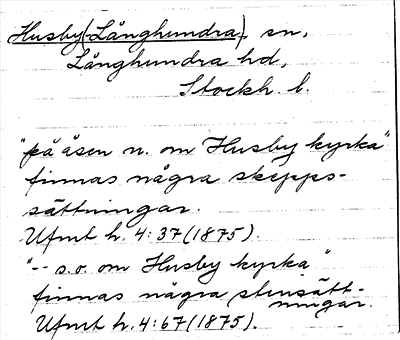 Husby(Långhundra), sn,
Långhundra hd,
Stockh. l.
"på åsen n. om Husby kyrka"
finnas några skepps-
sättningar.
Ufmt h. 4:37(1875).
"-- s.o. om Husby kyrka"
finnas några stensätt-
ningar.
Ufmt h. 4:67(1875).